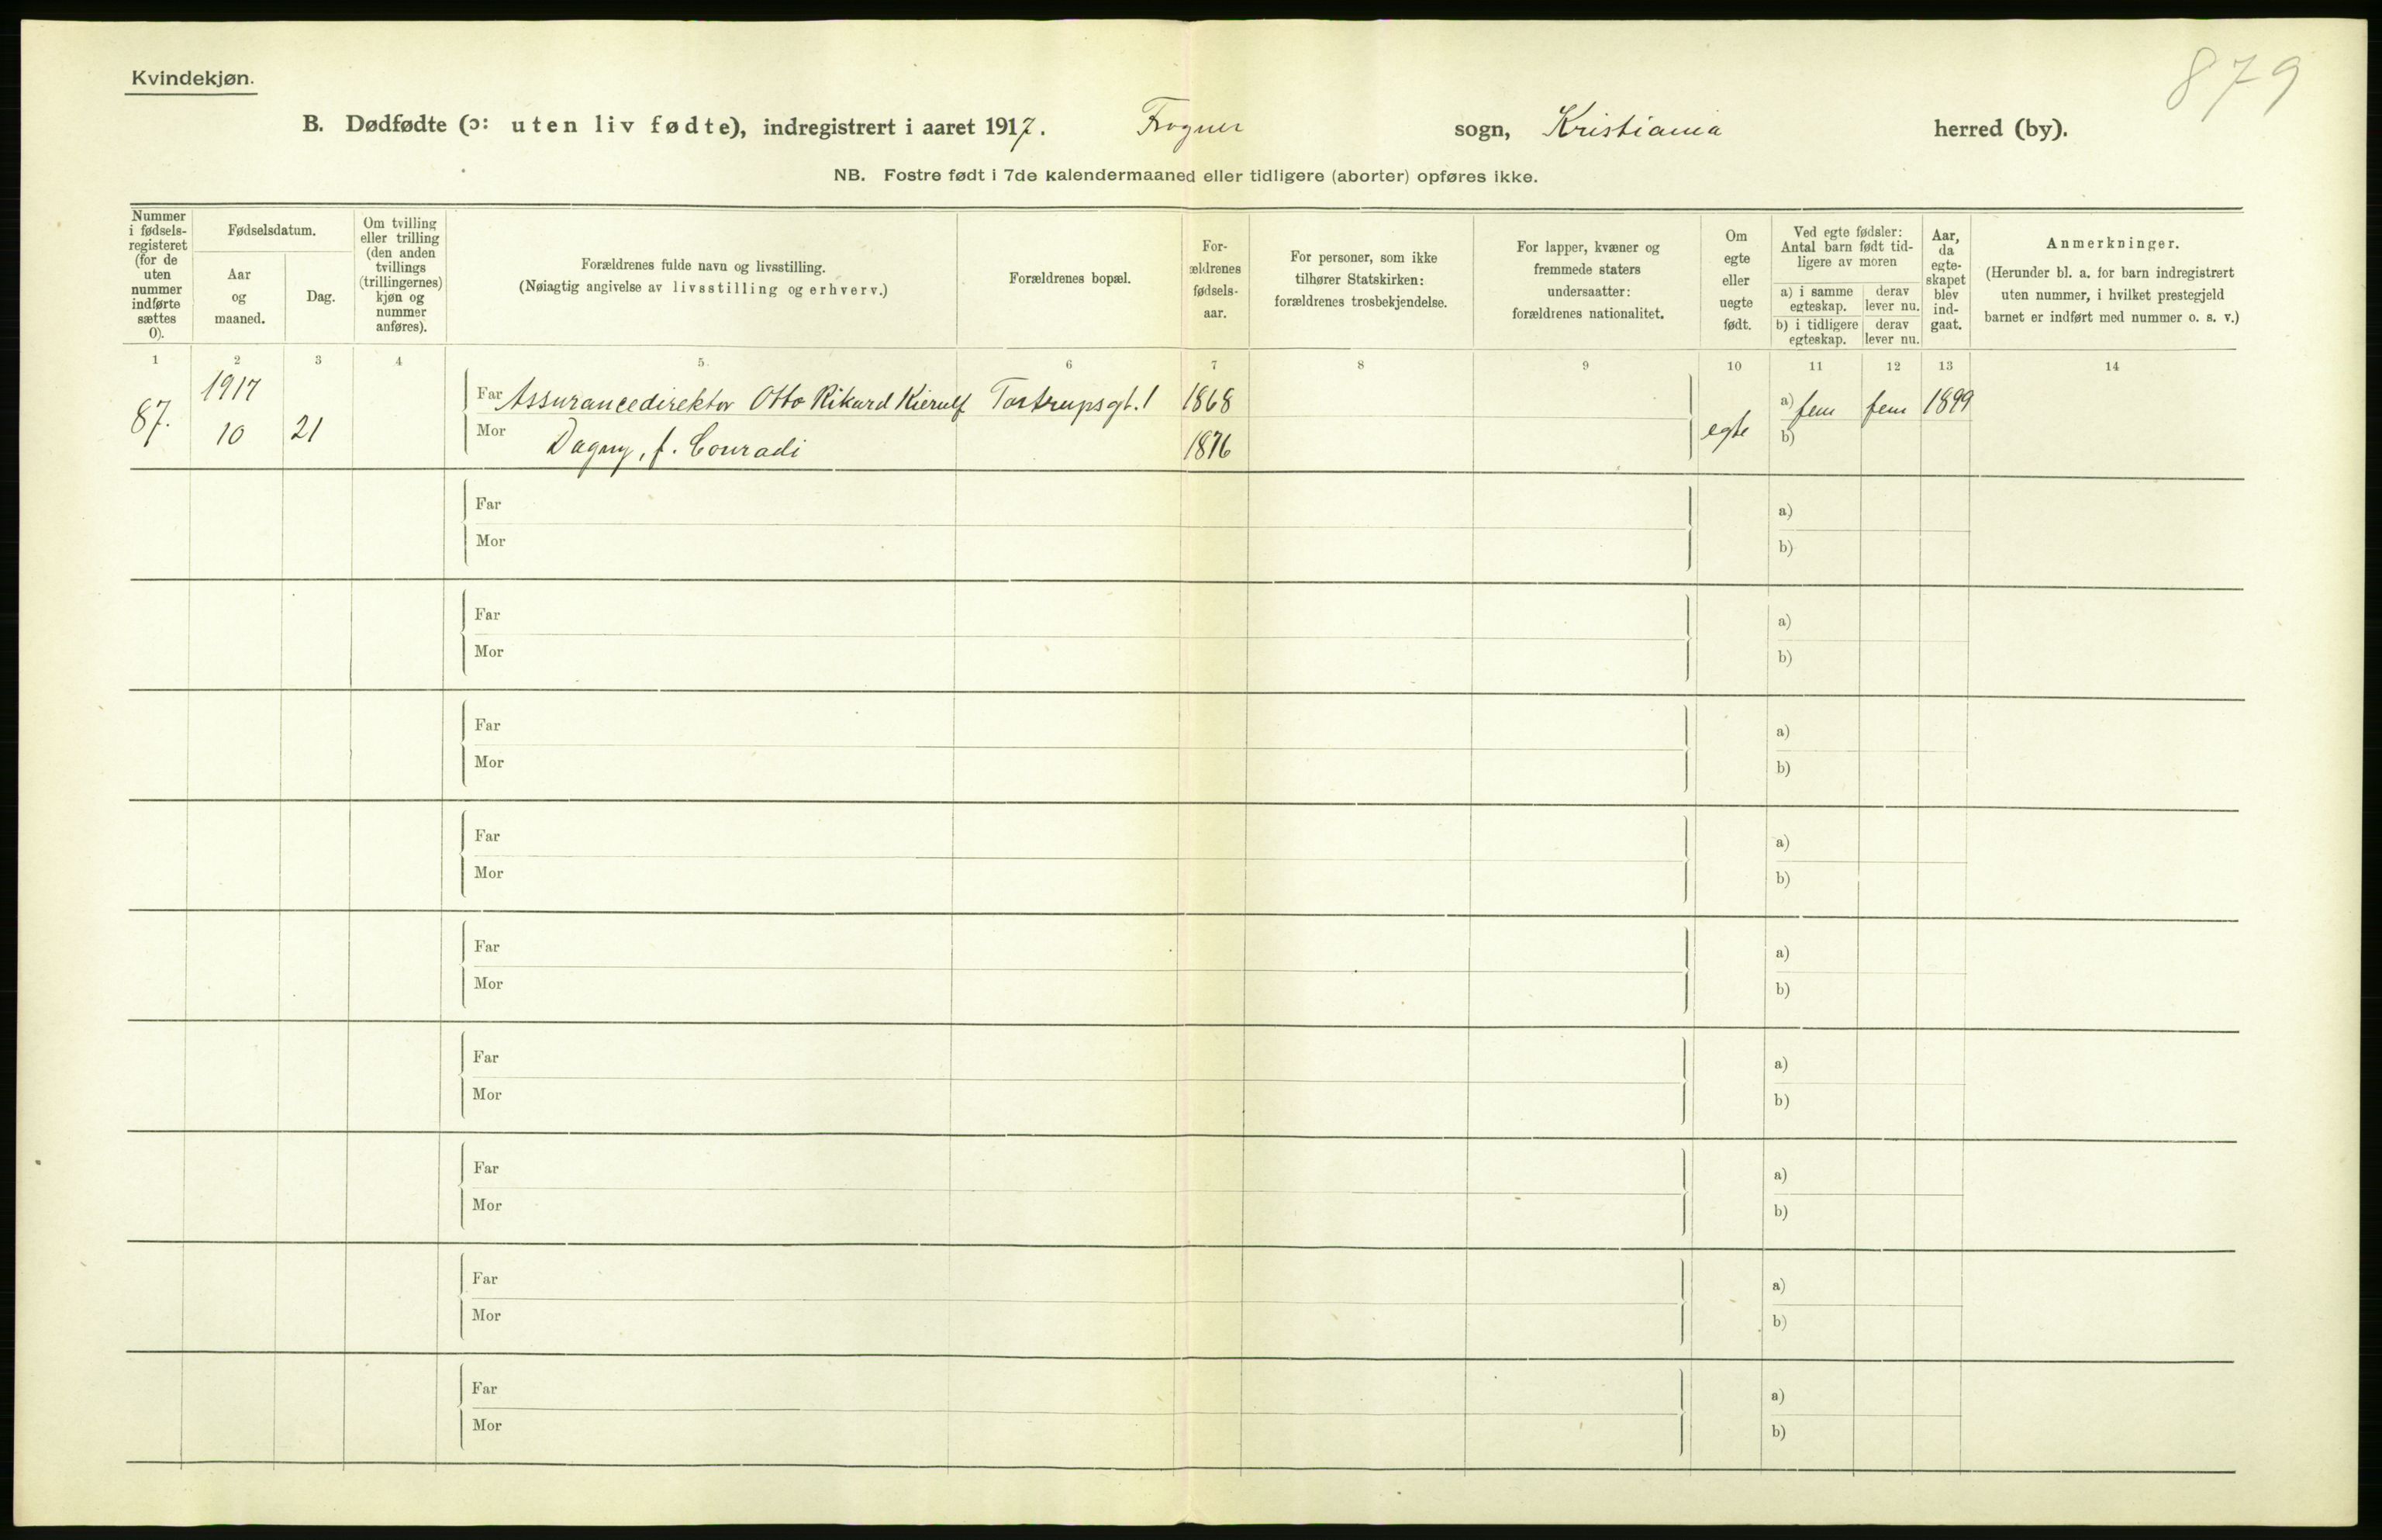 879
Kvindekjøn.
B. Dødfødte (ɔ: uten liv fødte), indregistrert i aaret 1917. Frogner sogn, Kristiania herred (by).
NB. Fostre født i 7de kalendermaaned eller tidligere (aborter) opføres ikke.
Nummer i fødsels-registeret (for de uten nummer indførte sættes 0).
Fødselsdatum.
Aar og maaned.
Dag.
Om tvilling eller trilling (den anden tvillings (trillingernes) kjøn og nummer anføres).
Forældrenes fulde navn og livsstilling.
(Nøiagtig angivelse av livsstilling og erhverv.)
Forældrenes bopæl.
For-ældrenes fødsels-aar.
For personer, som ikke tilhører Statskirken: forældrenes trosbekjendelse.
For lapper, kvæner og fremmede staters undersaatter: forældrenes nationalitet.
Om egte eller uegte født.
Ved egte fødsler: Antal barn født tid-ligere av moren
a) i samme egteskap.
derav lever nu.
b) i tidligere egteskap.
derav lever nu.
Aar, da egte-skapet blev ind-gaat.
Anmerkninger.
(Herunder bl. a. for barn indregistrert uten nummer, i hvilket prestegjeld barnet er indført med nummer o. s. v.)
1 2 3 4 5. 6 7 8 9 10 11 12 13 14
87. 1917 10 21
Far Assurancedirektør Otto Rikard Kierulf Tostrupsgt. 1 1868 egte a) fem fem 1899
Mor Dagny, f. Conradi 1876 b)
Far a)
Mor b)
Far a)
Mor b)
Far a)
Mor b)
Far a)
Mor b)
Far a)
Mor b)
Far a)
Mor b)
Far a)
Mor b)
Far a)
Mor b)
Far a)
Mor b)